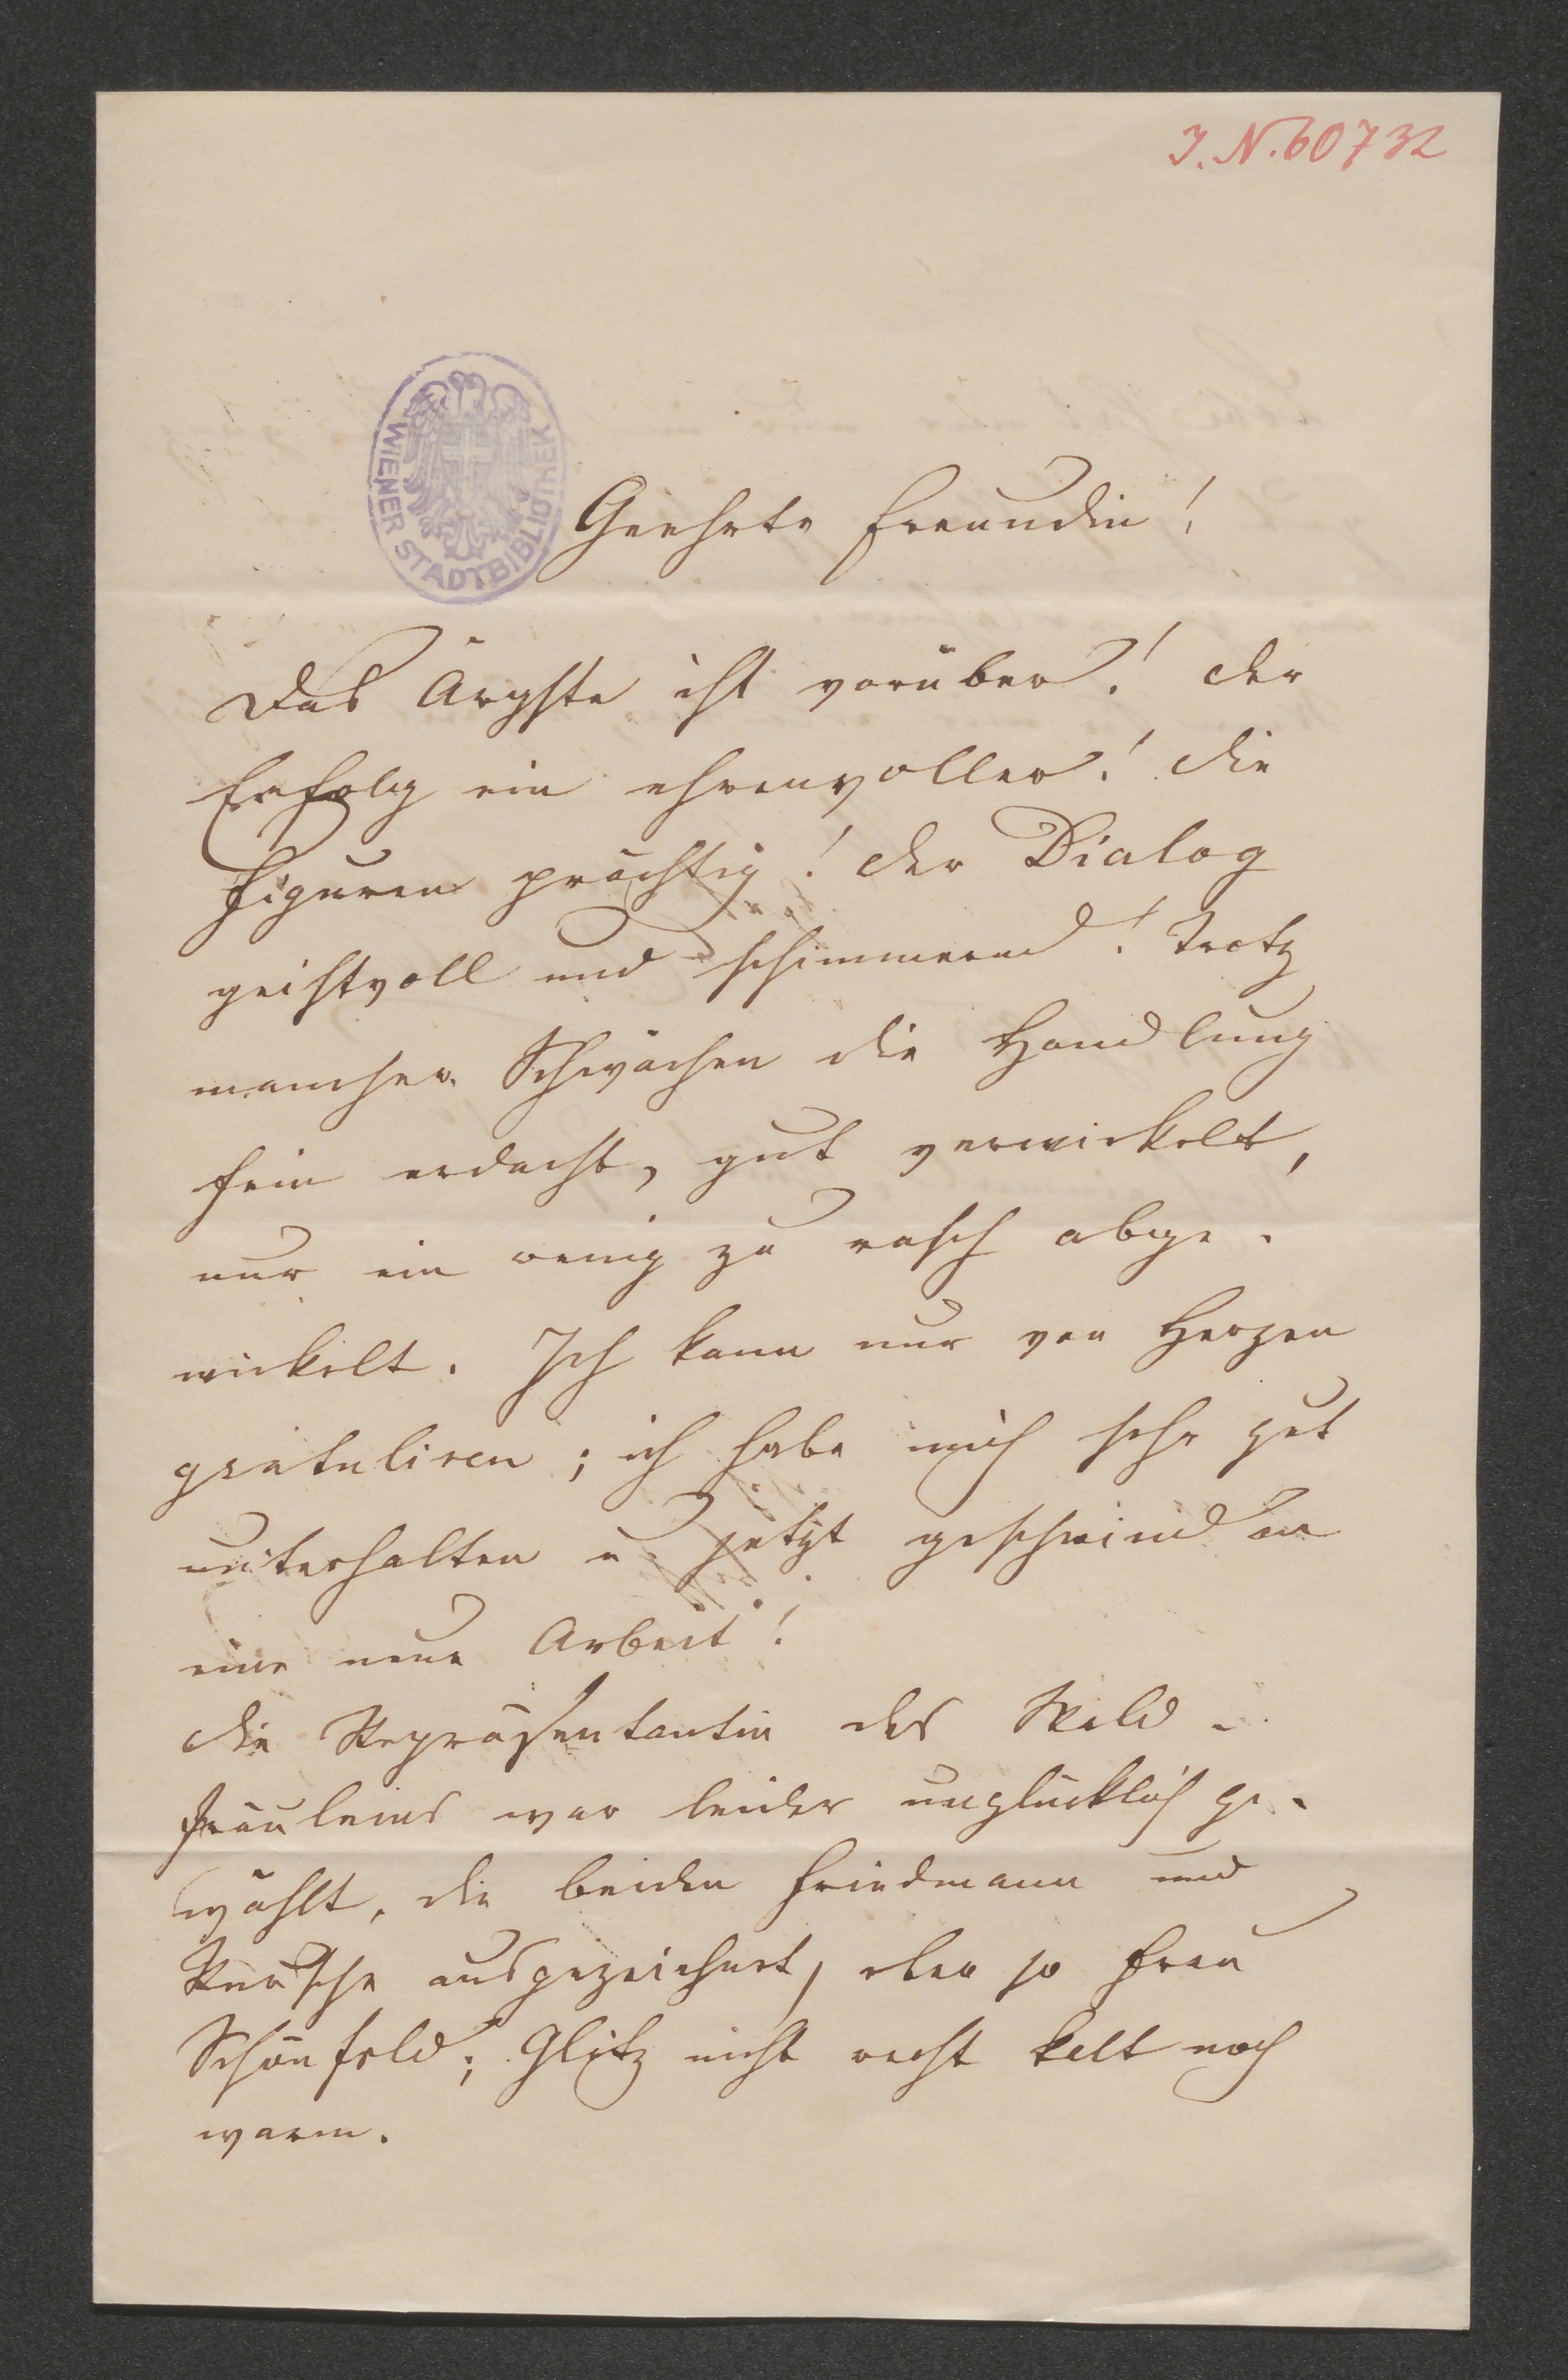 I. N. 60732
WIENER STADTBIBLIOTHEK
Geehrte Freundin!
Das Ärgste ist vorüber! der
Erfolg ein ehrenvoller! die
Figuren prächtig! der Dialog
geistvoll und schimmernd! Trotz
mancher Schwächen die Handlung
fein erdacht, gut verwickelt,
nur ein wenig zu rasch abge-
wickelt. Ich kann nur von Herzen
gratuliren; ich habe mich sehr gut
unterhalten u jetzt geschwind an
eine neue Arbeit!
die Repräsentantin des Wald-
fräuleins war leider unglücklich ge-
wählt, die beiden Friedmann und
ausgezeichnet, eben so Frau
Schönfeld; Glitz nicht recht kalt noch
warm.